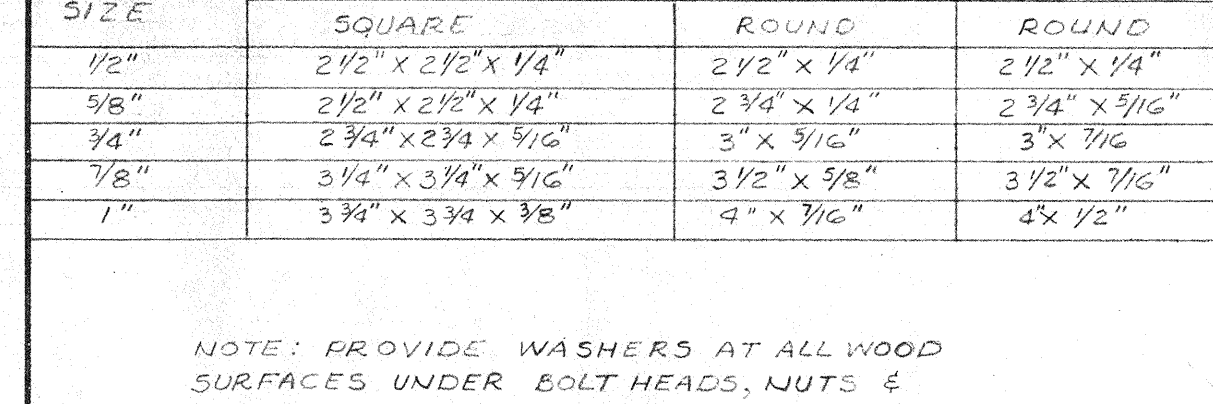 SIZE SQUARE ROUND ROUND
1/2" 2 1/2" X 2 1/2" X 1/4" 2 1/2" X 1/4" 2 1/2" X 1/4"
5/8" 2 1/2" X 2 1/2" X 1/4" 2 3/4" X 1/4" 2 3/4" X 5/16"
3/4" 2 3/4" X 2 3/4 X 5/16" 3" X 5/16" 3" X 7/16
7/8" 3 1/4" X 3 1/4" X 5/16" 3 1/2" X 5/8" 3 1/2" X 7/16"
1" 3 3/4" X 3 3/4 X 3/8" 4" X 7/16" 4" X 1/2"
NOTE: PROVIDE WASHERS AT ALL WOOD
SURFACES UNDER BOLT HEADS, NUTS &